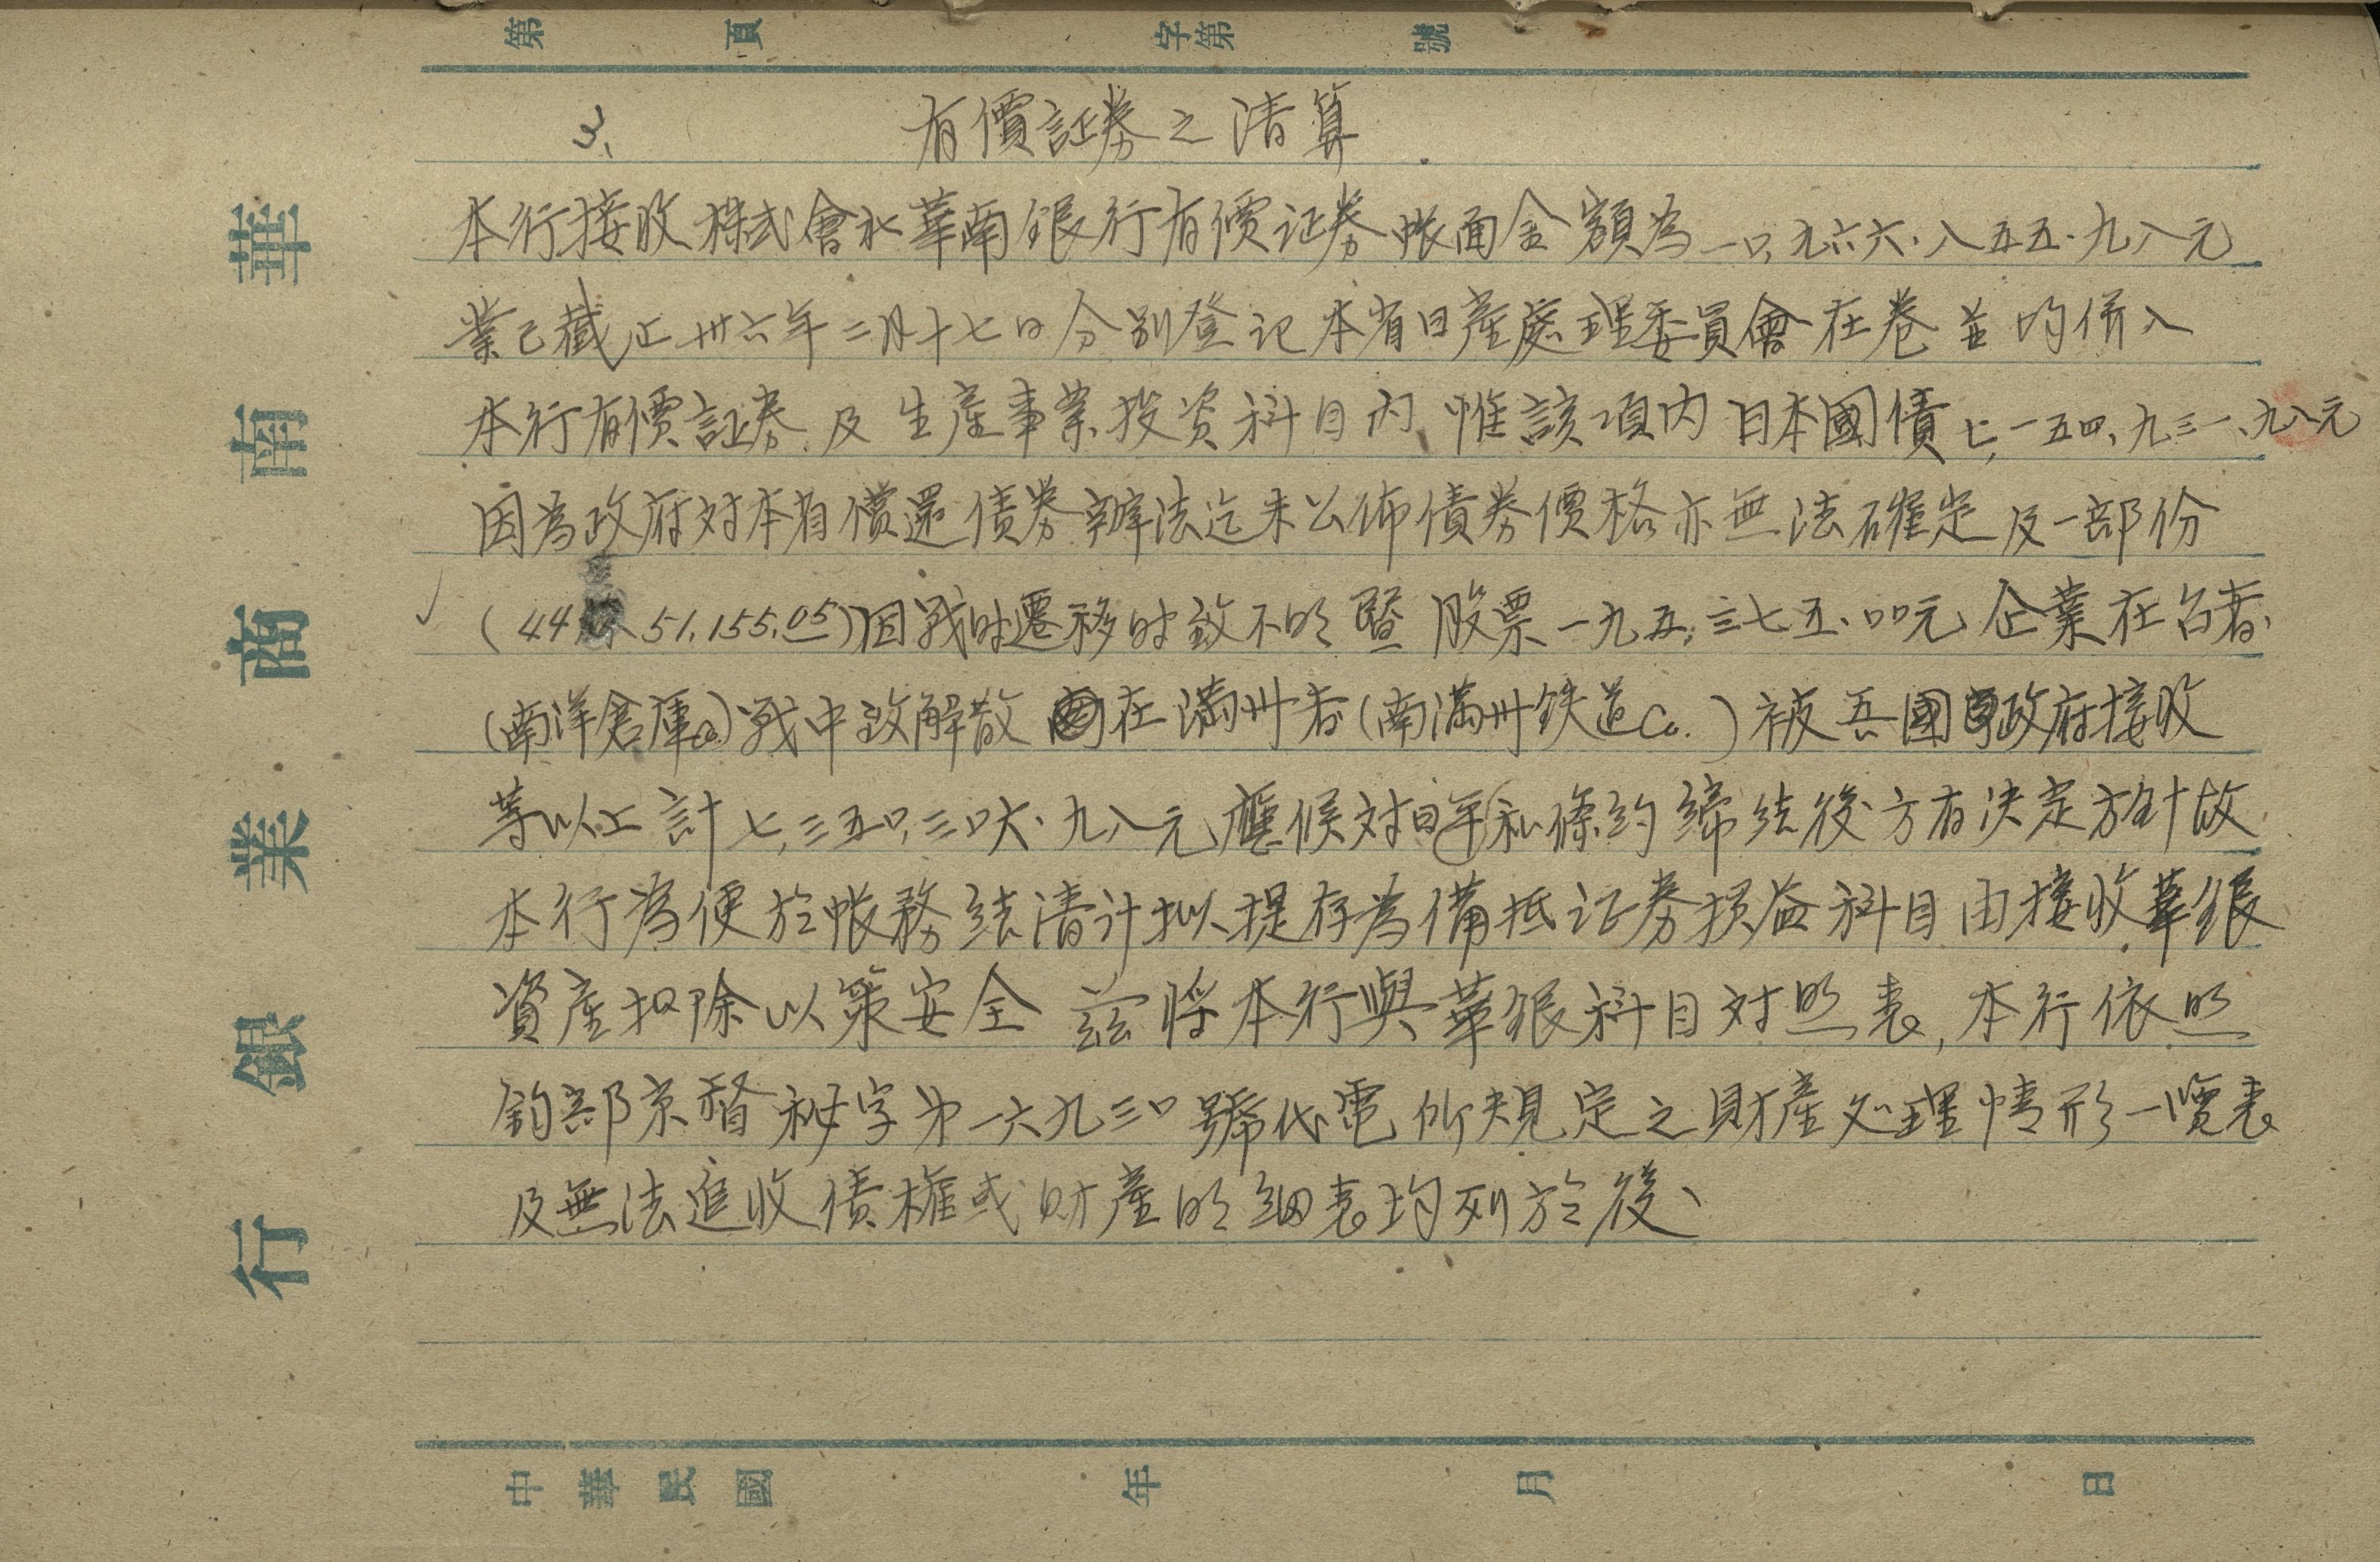 第　頁　字第　號
3、　有價証券之清算
本行接收株式會社華南銀行有價证券帳面金額為一〇,九六六.八五五.九八元
業已截止卅六年二月十七日分别登记本省日產處理委員會在卷並均併入
本行有價証券及生產事業投资科目内、惟該項内日本國債七,一五四、九三一、九八元
因為政府对本省償還债券辦法迄未公佈債券價格亦無法確定及一部份
(44 51,155.05)因戰时遷移时致不明暨股票一九五,三七五.〇〇元企業在台者、
(南洋倉庫Co.)戰中致解散在滿卅者(南滿卅鉄道Co.)被吾國政府接收
等以上計七,三五〇,三〇六.九八元應候对日和條約締结後方有決定方針故
本行為便於帳務结清计拟提存為備抵证券损益科目由接收華銀
資產扣除以策安全茲将本行與華銀科目对照表,本行依照
鈞部京督秘字第一六九三〇號代電所規定之財產处理情形一覽表
及無法追收债權或財產明細表均列於後、
華南商業銀行
中華民國　年　月　日